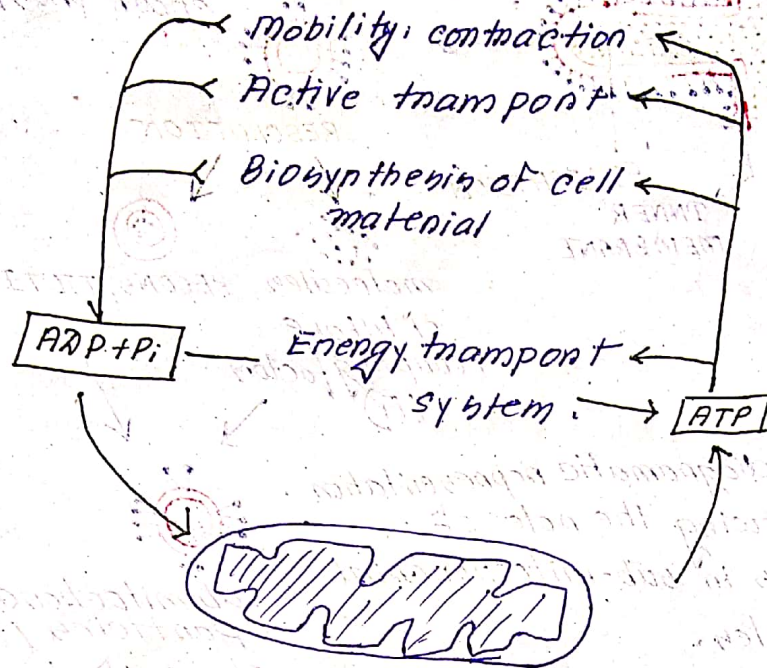 Mobility, contraction
Active transport
Biosynthesis of cell
material
ADP+Pi
Energy transport
system.
ATP